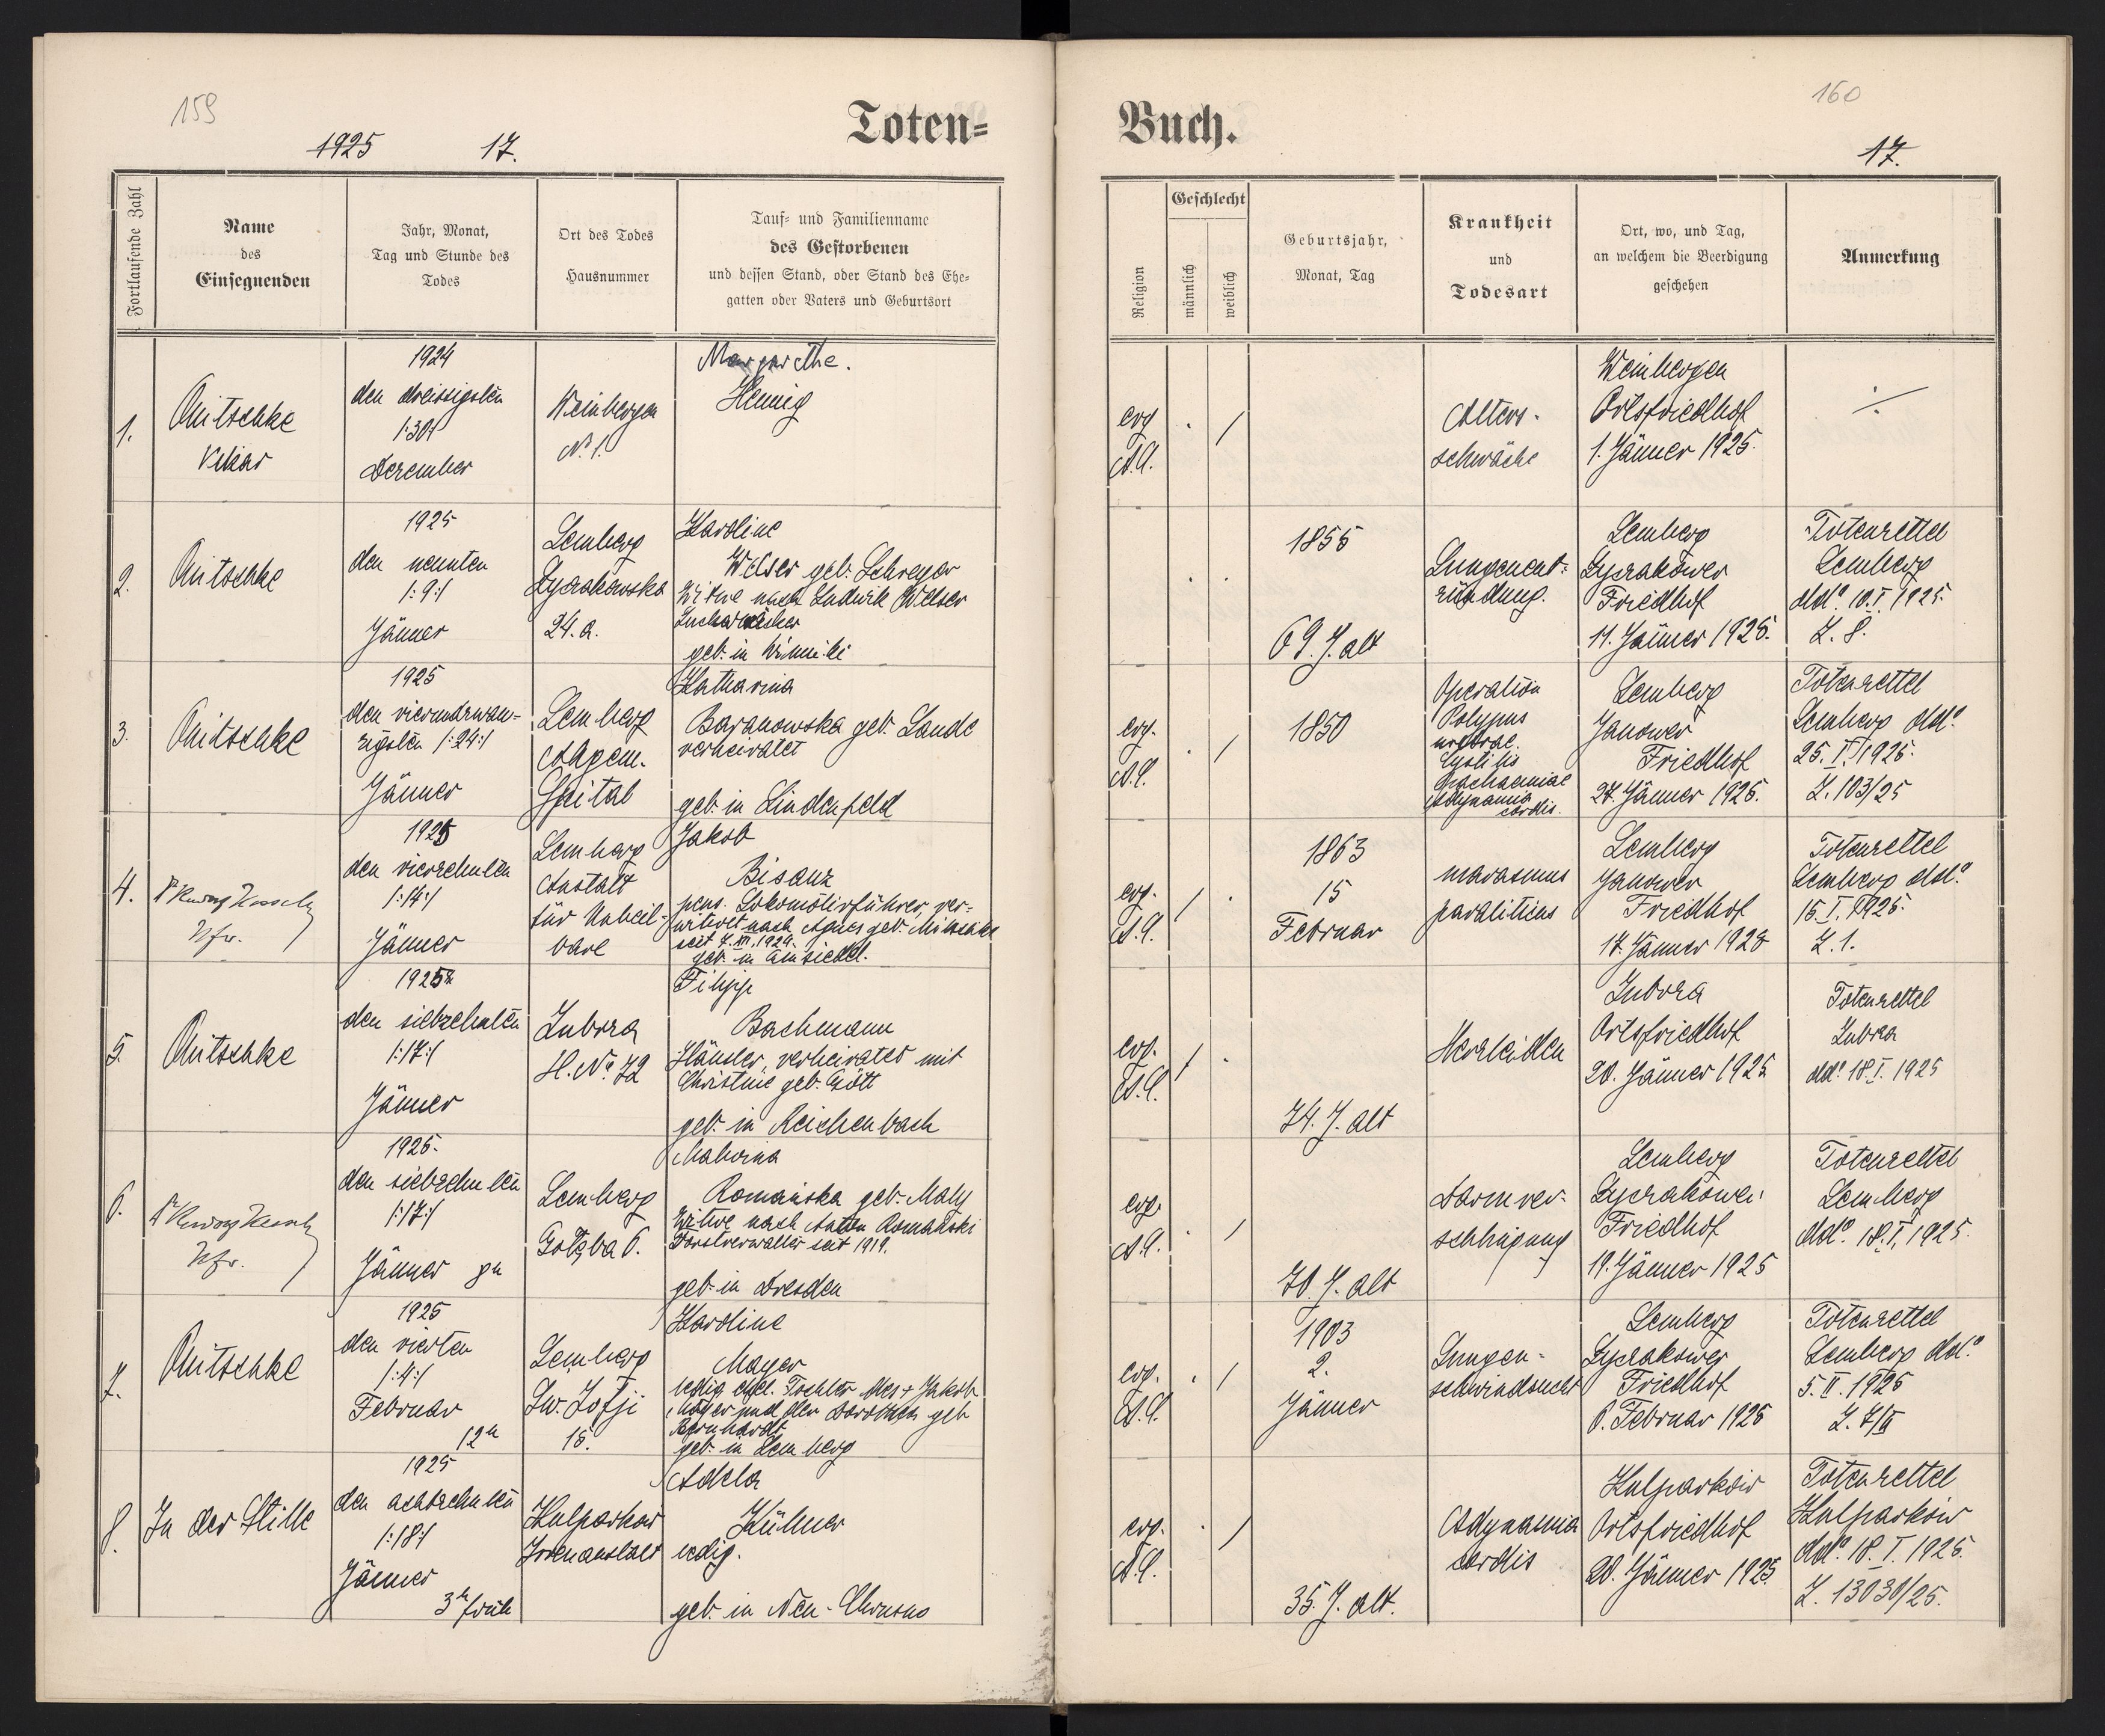 159
1925 17.
Toten=
Fortlaufende Zahl
Name
des
Einsegnenden
Jahr, Monat,
Tag und Stunde des
Todes
Ort des Todes
Hausnummer
Tauf= und Familienname
des Gestorbenen
und dessen Stand, oder Stand des Ehe=
gatten oder Vaters und Geburtsort
1.
Vikar
1924
den dreissigsten
1:30:1
Dezember
Weinbergen
No. 1.
Margarethe.
Hennig
2.
1925
den neunten
1:9:1
Jänner
Lemberg
Łyczakowska
24. a.
Karoline
Welser geb. Schreyer
Witwe nach Ludwik Welser
geb. in Winniki
3.
1925
den vierundzwan=
zigsten 1:24:1
Jänner
Lemberg
Allgem.
Spital
Katharina
Baranowska geb. Lande
verheiratet
geb. in Lindenfeld
4.
1925
den vierzehnten
1:14:1
Jänner
Lemberg
Anstalt
für Unheil=
bare
Jakob
Bisanz
pens. Lokomotivführer, ver=
witwet nach Agnes geb.
seit
geb. in Einsiedel.
5.
1925
den siebzehnten
1:17:1
Jänner
Zubrza
H. No. 72
Filipp
Bachmann
Häusler, verheiratet mit
Christine geb. Gött
geb. in Reichenbach
6.
1925.
den siebzehnten
1:17:1
Jänner
Lemberg
Gołąba 6.
Malwina
Romańska geb. Maly
Witwe nach Anton Romański
Forstverwalter seit 1919.
geb. in Dresden
7.
1925
den vierten
1:4:1
Februar
12h
Lemberg
Św. Zofji
15.
Karoline
Mayer
ledig, ehel. Tochter des + Jakob
Mayer und der Dorothea geb
Bernhardt
geb. in Lemberg
8.
In der Stille
1925
den achtzehnten
1:18:1
Jänner
3h früh
Kulparkow
Irrenanstalt
Adela
Kühner
ledig.
geb. in Neu-Chrusno
160
17.
Buch.
Religion
Geschlecht
männlich
weiblich
Geburtsjahr,
Monat, Tag
Krankheit
und
Todesart
Ort, wo, und Tag,
an welchem die Beerdigung
geschehen
Anmerkung
evg
A.C.
Alters-
schwäche
Weinbergen
Ortsfriedhof
1. Jänner 1925.
1855
69. J. alt
Lungenent=
zündung.
Lemberg
Łyczakower
Friedhof
11. Jänner 1925.
Totenzettel
Lemberg
ddo. 10.I.1925.
Z. 8.
evg.
A.C.
1850
Operation
Polypus
Cystitis
Adynamia
cordis.
Lemberg
Janower
Friedhof
27. Jänner 1925.
Totenzettel
Lemberg ddo.
25.I.1925.
Z. 103/25
evg.
A.C.
1863
15
Februar
marasmus
paraliticus
Lemberg
Janower
Friedhof
17. Jänner 1925
Totenzettel
Lemberg ddo.
15.I.1925.
Z. 1.
evg.
A.C.
74. J. alt
Herzleiden
Zubrza
Ortsfriedhof
20. Jänner 1925
Totenzettel
Zubrza
ddo. 18.I.1925
evg.
A.C.
70. J. alt
Darmver-
schlingung
Lemberg
Łyczakower
Friedhof
19. Jänner 1925
Totenzettel
Lemberg
ddo. 18.I.1925.
evg.
A.C.
1903
2.
Jänner
Lungen-
schwindsucht
Lemberg
Łyczakower
Friedhof
6. Februar 1925
Totenzettel
Lemberg ddo.
5.II.1925
Z. 7/II
evg.
A.C.
35. J. alt.
Adynamia
cordis
Kulparków
Ortsfriedhof
20. Jänner 1925
Totenzettel
Kulparków
ddo. 18.I.1925.
Z. 13030/25.